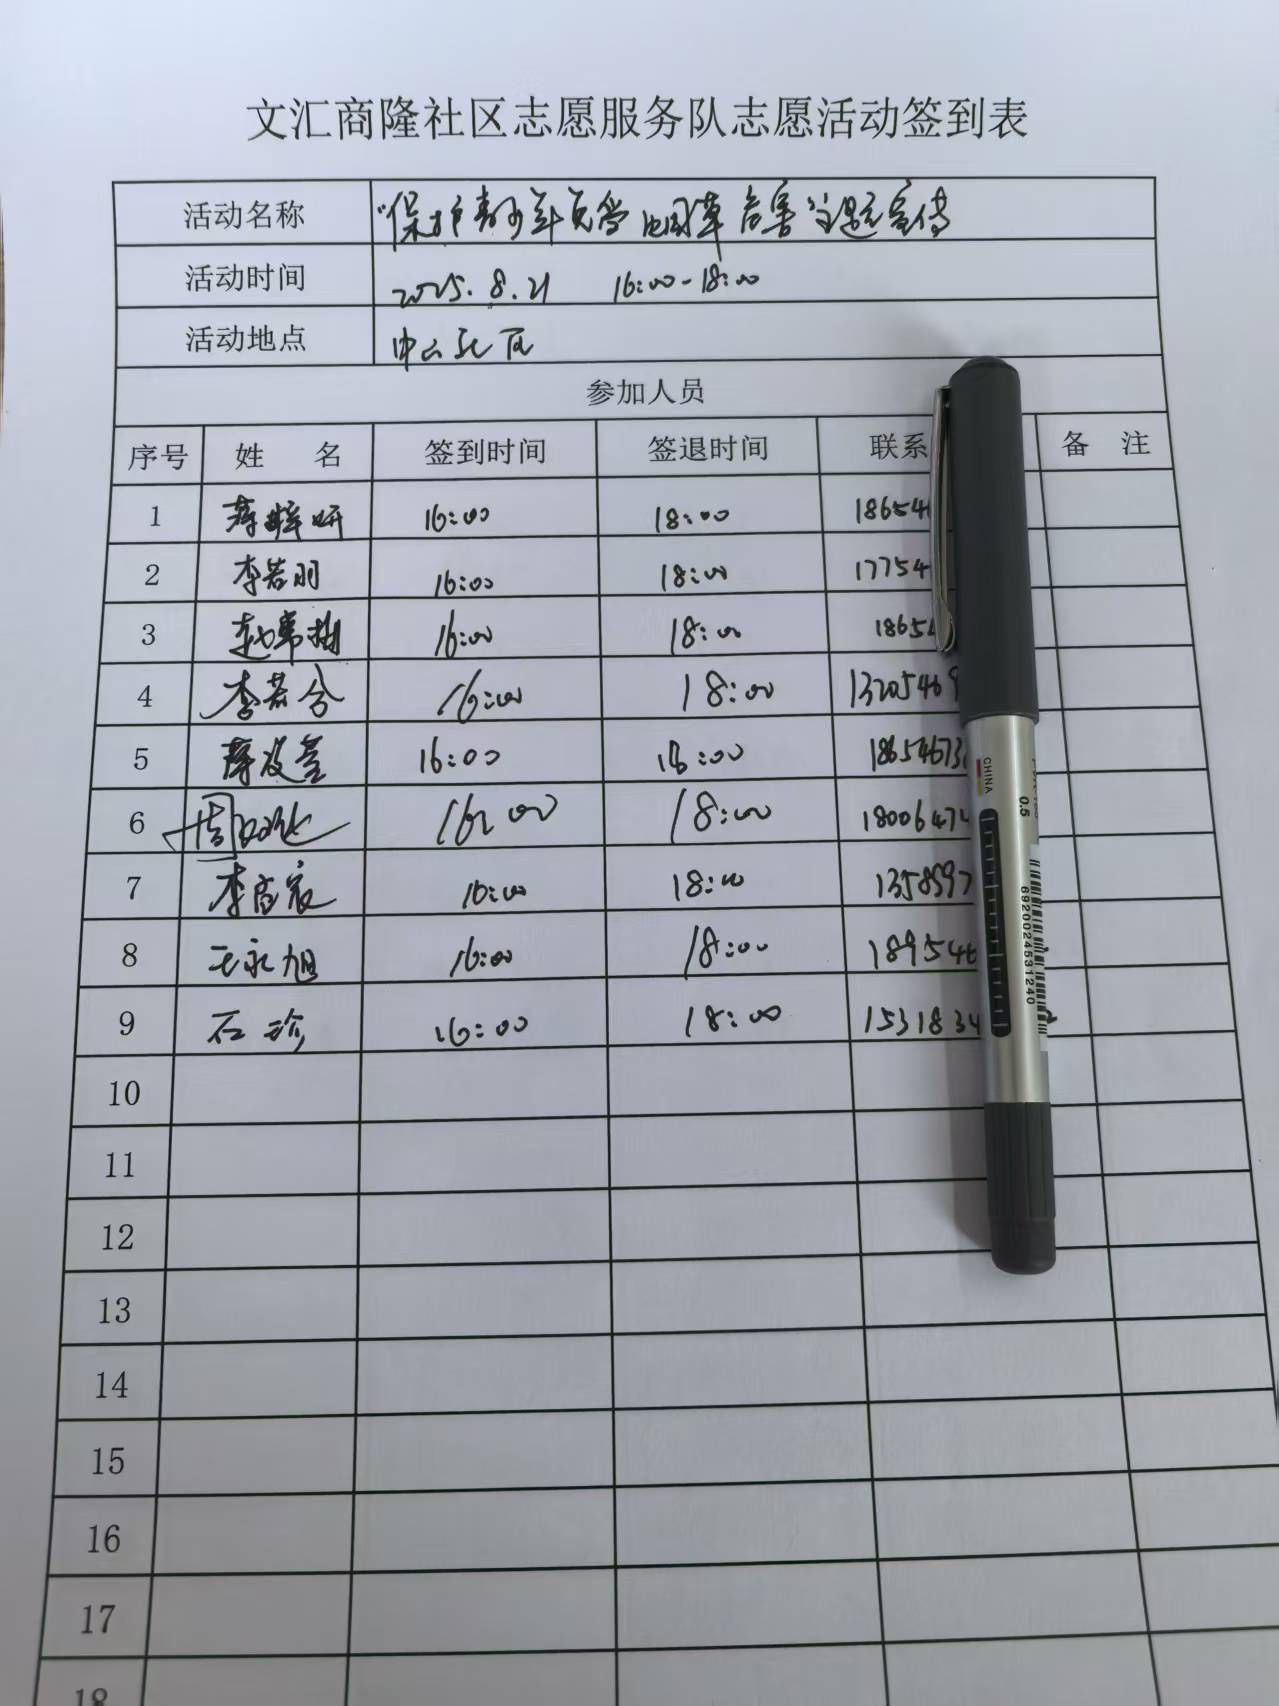 文汇商隆社区志愿服务队志愿活动签到表
活动名称 "保护青少年免受烟草危害"主题宣传
活动时间 2025.8.21 16:00-18:00
活动地点 中山社区
参加人员
序号 姓 名 签到时间 签退时间 联系 备 注
1 16:00 18:00 18654
2 李若羽 16:00 18:00 17754
3 16:00 18:00 1865
4 李若兮 16:00 18:00 1320546
5 16:00 18:00 1865467
6 16:00 18:00 1800647
7 李宫宸 16:00 18:00 1358597
8 王永旭 16:00 18:00 189546
9 石珍 16:00 18:00 1531834
10
11
12
13
14
15
16
17
18
CHINA
0.5
6920024531240